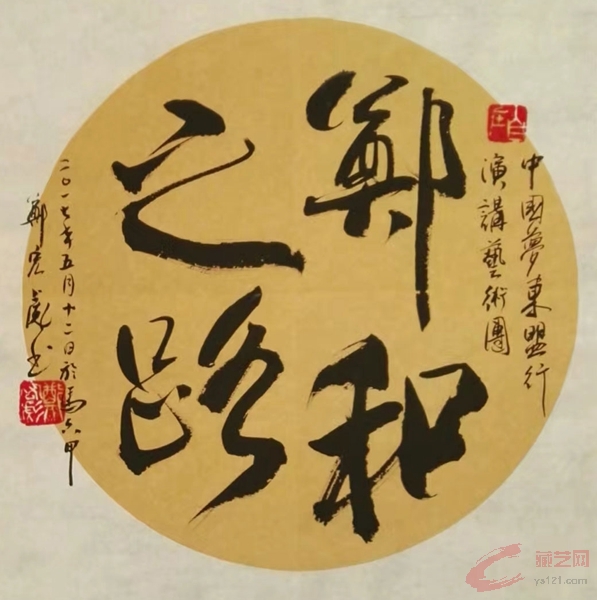 中国夢東盟行
演講藝術團
鄭和
之路
二〇一七年五月十二日於馬六甲
鄭宏彪书
藏艺网
ys121.com